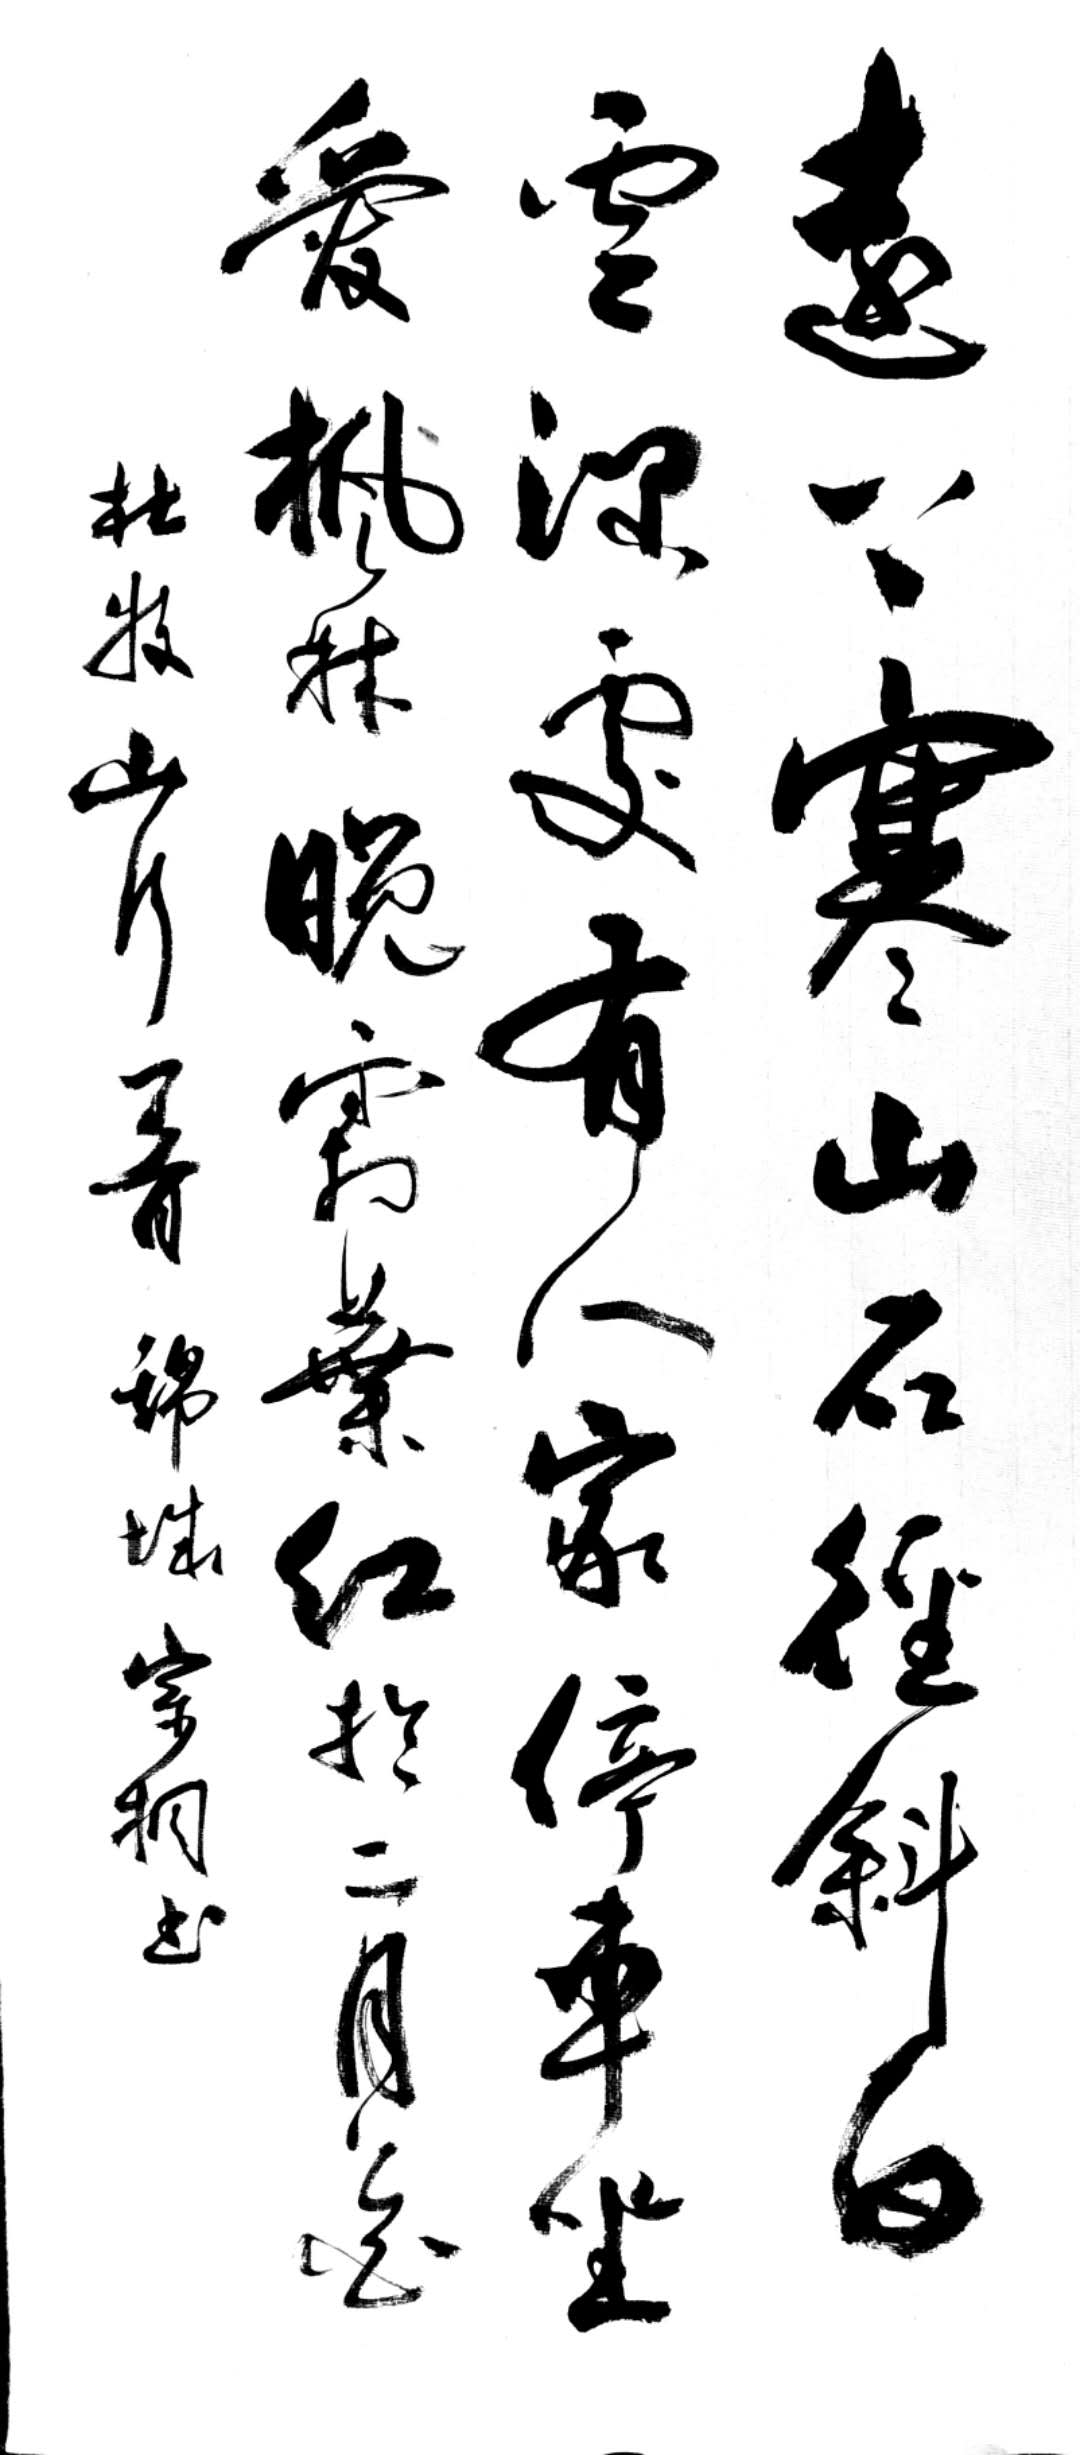 遠上寒山石徑斜白
雲深處有人家停車坐
愛楓林晚霜葉紅於二月花
杜牧山行 錦城 宗桐书